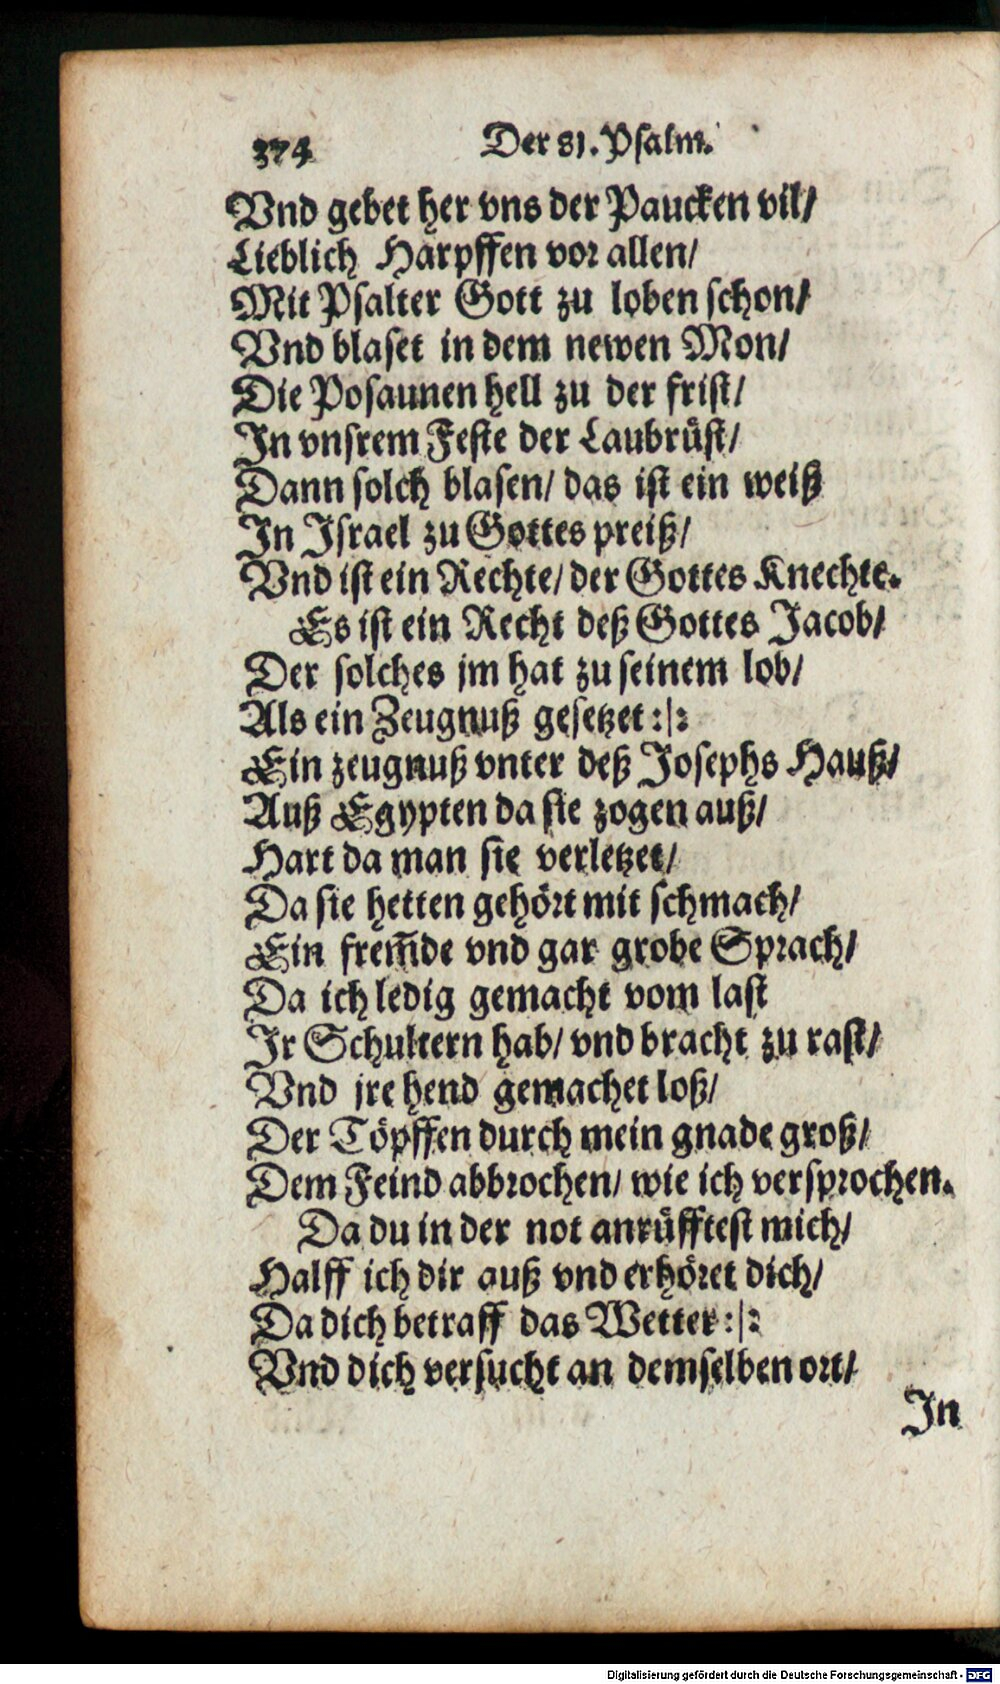 374 Der 81. Psalm.
Vnd gebet her vns der Paucken vil/
Lieblich Harpffen vor allen/
Mit Psalter Gott zu loben schon/
Vnd blaset in dem newen Mon/
Die Posaunen hell zu der frist/
In vnsrem Feste der Laubrüst/
Dann solch blasen/ das ist ein weiß
In Israel zu Gottes preiß/
Vnd ist ein Rechte/ der Gottes Knechte.
Es ist ein Recht deß Gottes Jacob/
Der solches jm hat zu seinem lob/
Als ein Zeugnuß gesetzet :|:
Ein zeugnuß vnter deß Josephs Hauß/
Auß Egypten da sie zogen auß/
Hart da man sie verletzet/
Da sie hetten gehört mit schmach/
Ein frem̃de vnd gar grobe Sprach/
Da ich ledig gemacht vom last
Ir Schultern hab/ vnd bracht zu rast/
Vnd jre hend gemachet loß/
Der Töpffen durch mein gnade groß/
Dem Feind abbrochen/ wie ich versprochen.
Da du in der not anrüfftest mich/
Halff ich dir auß vnd erhöret dich/
Da dich betraff das Wetter :|:
Vnd dich versucht an demselben ort/
In
Digitalisierung gefördert durch die Deutsche Forschungsgemeinschaft - DFG